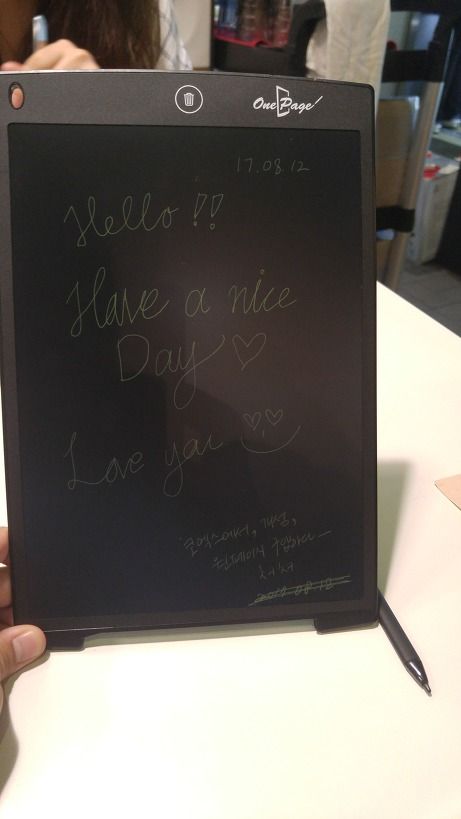 One Page
17.08.12
Hello !!
Have a nice
Day ♡
Love you
에서,
원페이지 구입하다 —